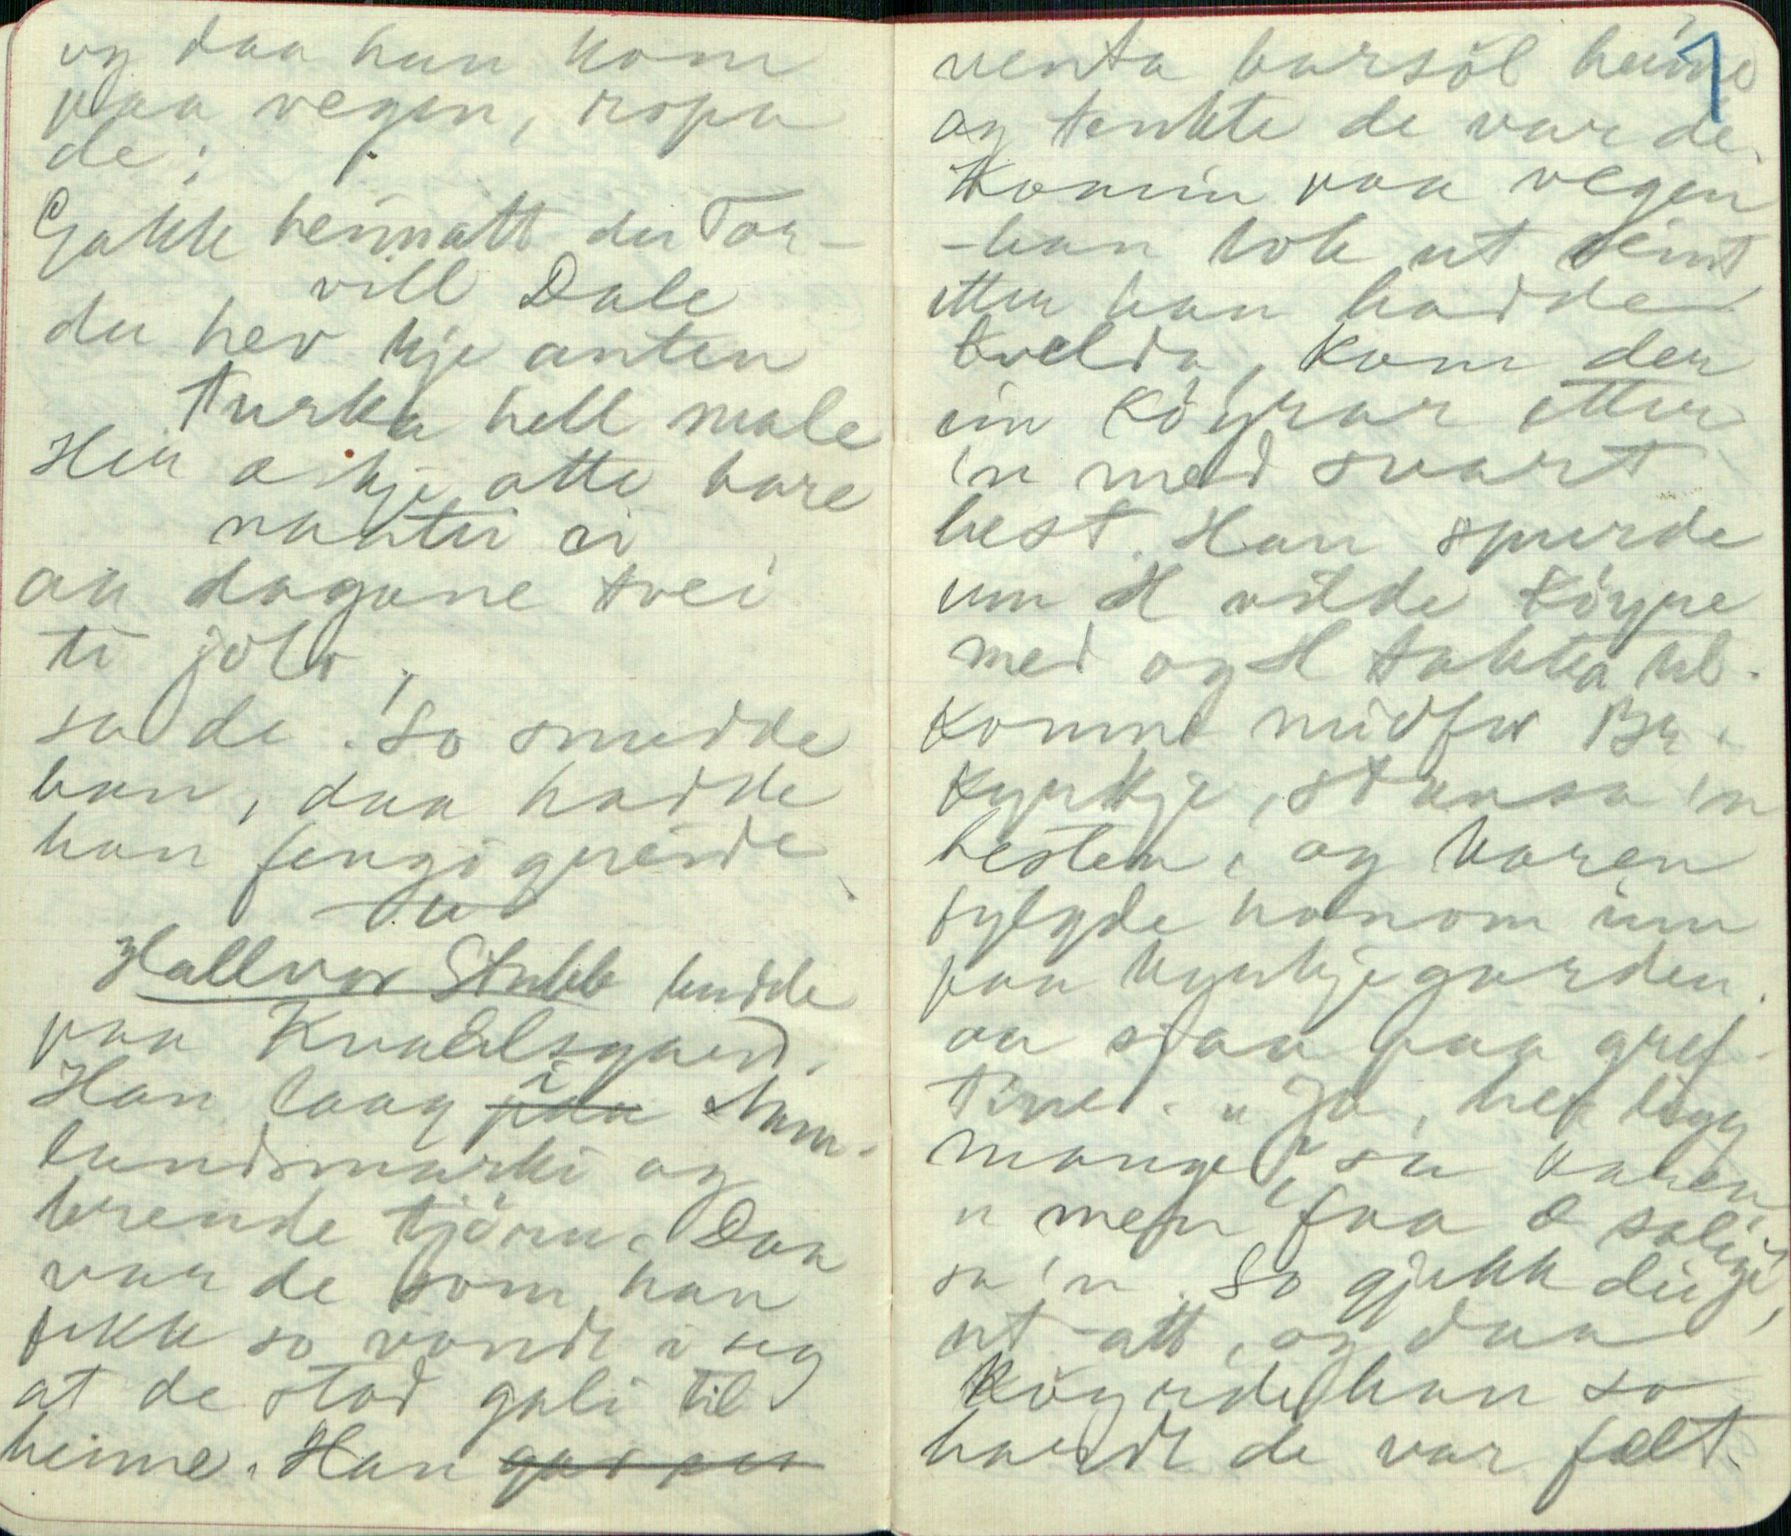 og daa han kom
paa vegen, ropa
de;
Gakk heimatt du Tor-
vill Dale
du hev kje anten
turka hell male
Her æ kje atte bare
nahter ei
aa dagane tvei
ti jolo,
sa de. So snudde
han, daa hadde
han fengi greide
Hallvor Stubb budde
paa Kvaalsgard.
Han laag i
landsmarki og
brende tjöru. Daa
var de som han
fekk so vondt i seg
at de stod gali til
heime. Han
7
venta barsöl heime
og tenkte de var de.
Komin paa vegen
- han tok ut seint
etter han hadde
kvelda, kom der
ein köyrar etter
'n med svart
hest. Han spurde
um H vilde köyre
med og H takka til.
Komne midfor Bö
kyrkje, stansa 'n
hesten, og karen
fylgde honom inn
paa kyrkjegarden
aa sjaa paa gref-
tine. "Ja, her ligg
mange", sa karen
"men faa æ salige",
sa 'n. So gjekk dei
ut-att, og daa
köyrde han so
hardt de var fælt.